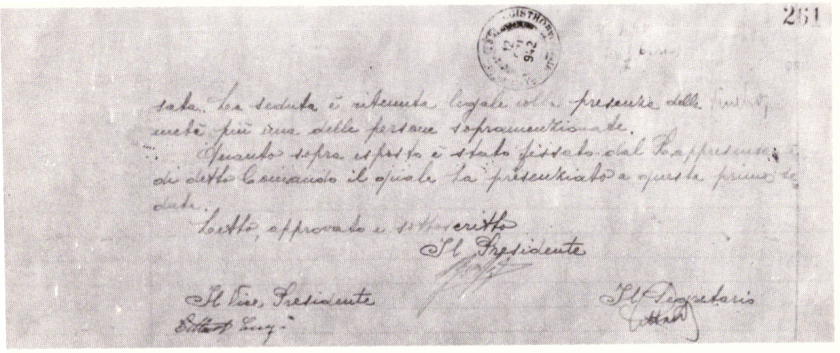 261
12
942
sata. La seduta è ritenuta legale colla presenza della
metà più una delle persone sopramenzionate.
Quanto sopra esposto è stato fissato dal Rappresentante
di detto Comando il quale ha presenziato a questa prima se
duta.
Letto, approvato e sottoscritto
Il Presidente
Il Vice Presidente
Il Segretario